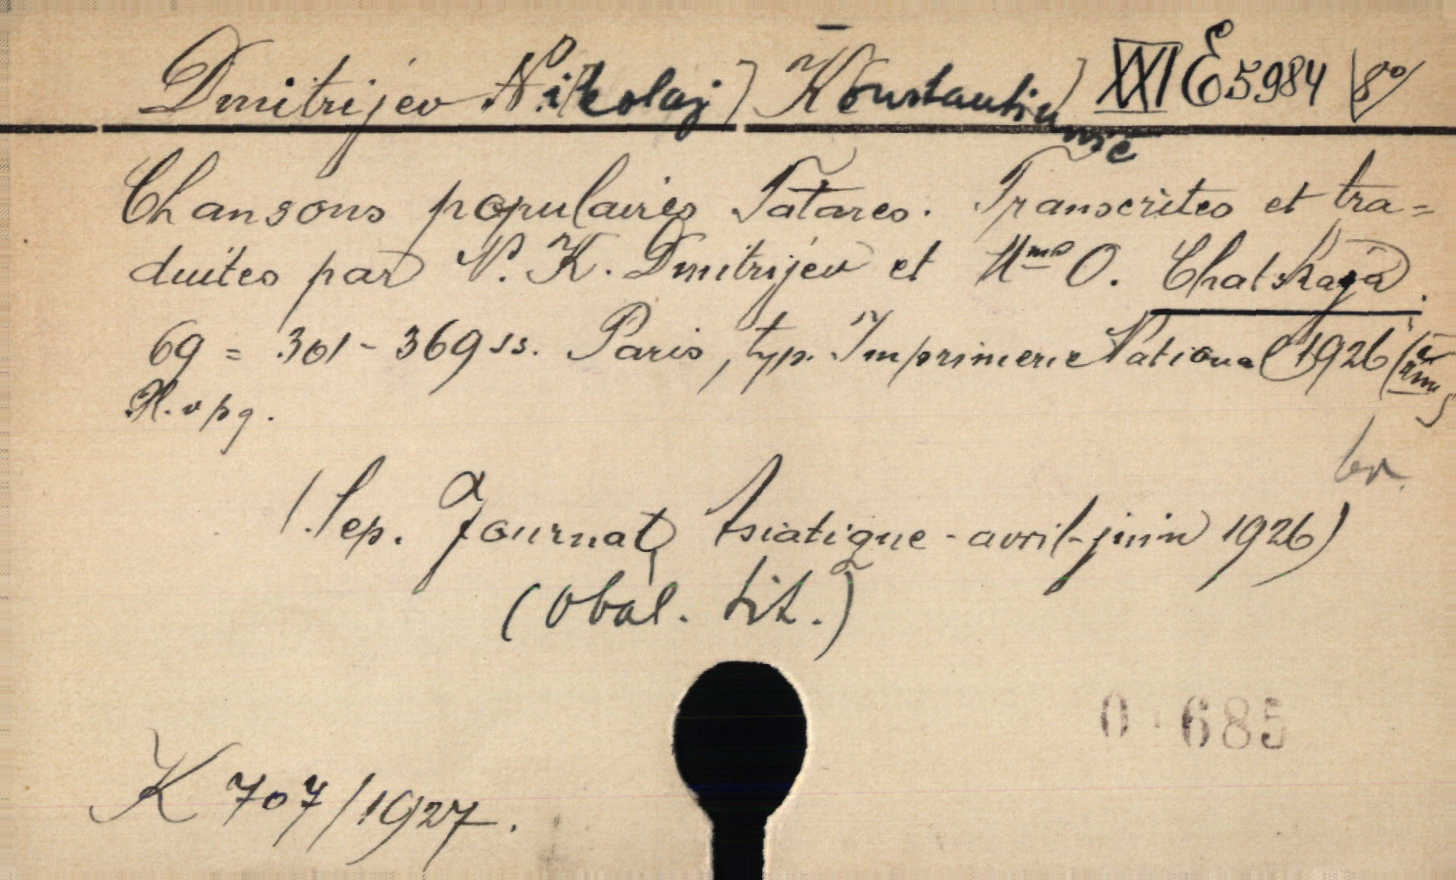 Dmitrijev Nikolaj) Konstantinovič) XXI E 5984 8°
Chansons populaires Tatares. Transcrites et tra=
duites par N. K. Dmitrijev et Mme O. Chatskaya.
69 = 301 - 369 ss. Paris, typ. Imprimerie National 1926
br.
(Sep. Journal Asiatique - avril-juin 1926)
(Obal. tit.)
0 685
K 707/1927.